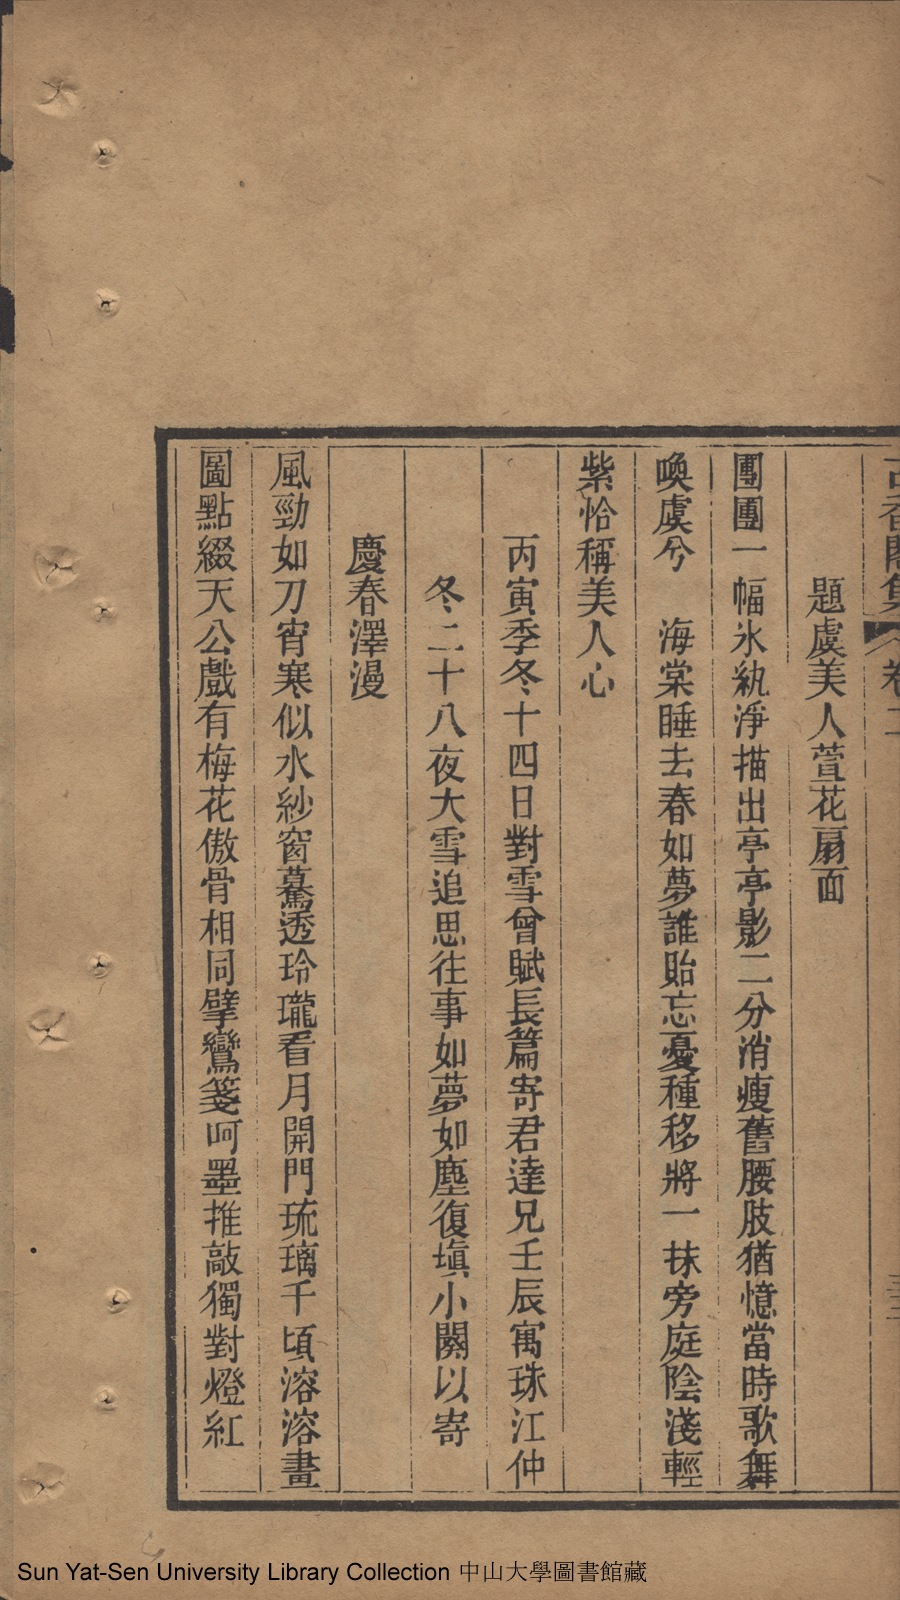 古香閣集 卷二
題虞美人萱花扇面
團團一幅氷紈淨描出亭亭影二分消瘦舊腰肢猶憶當時歌舞
喚虞兮　海棠睡去春如夢誰貽忘憂種移將一抹旁庭陰淺輕
紫恰稱美人心
丙寅季冬十四日對雪曾賦長篇寄君達兄壬辰寓珠江仲
冬二十八夜大雪追思往事如夢如塵復塡小闋以寄
慶春澤漫
風勁如刀宵寒似水紗窗驀透玲瓏看月開門琉璃千頃溶溶畫
圖點綴天公戲有梅花傲骨相同擘鸞箋呵墨推敲獨對燈紅
Sun Yat-Sen University Library Collection 中山大學圖書館藏